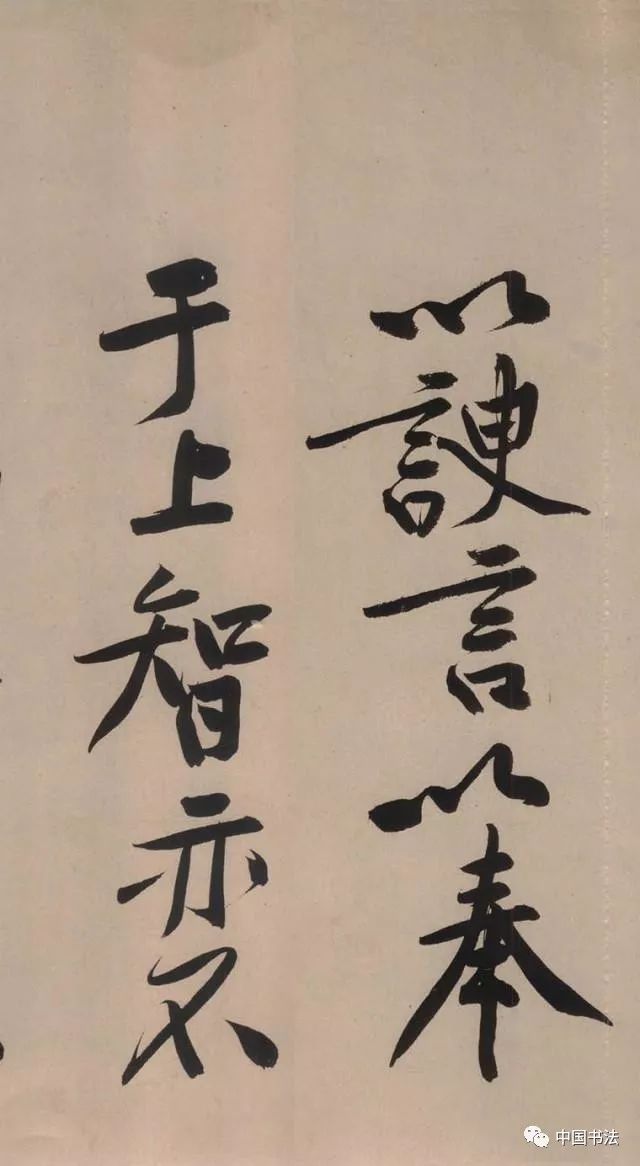 以諛言以奉
于上智亦不
中国书法